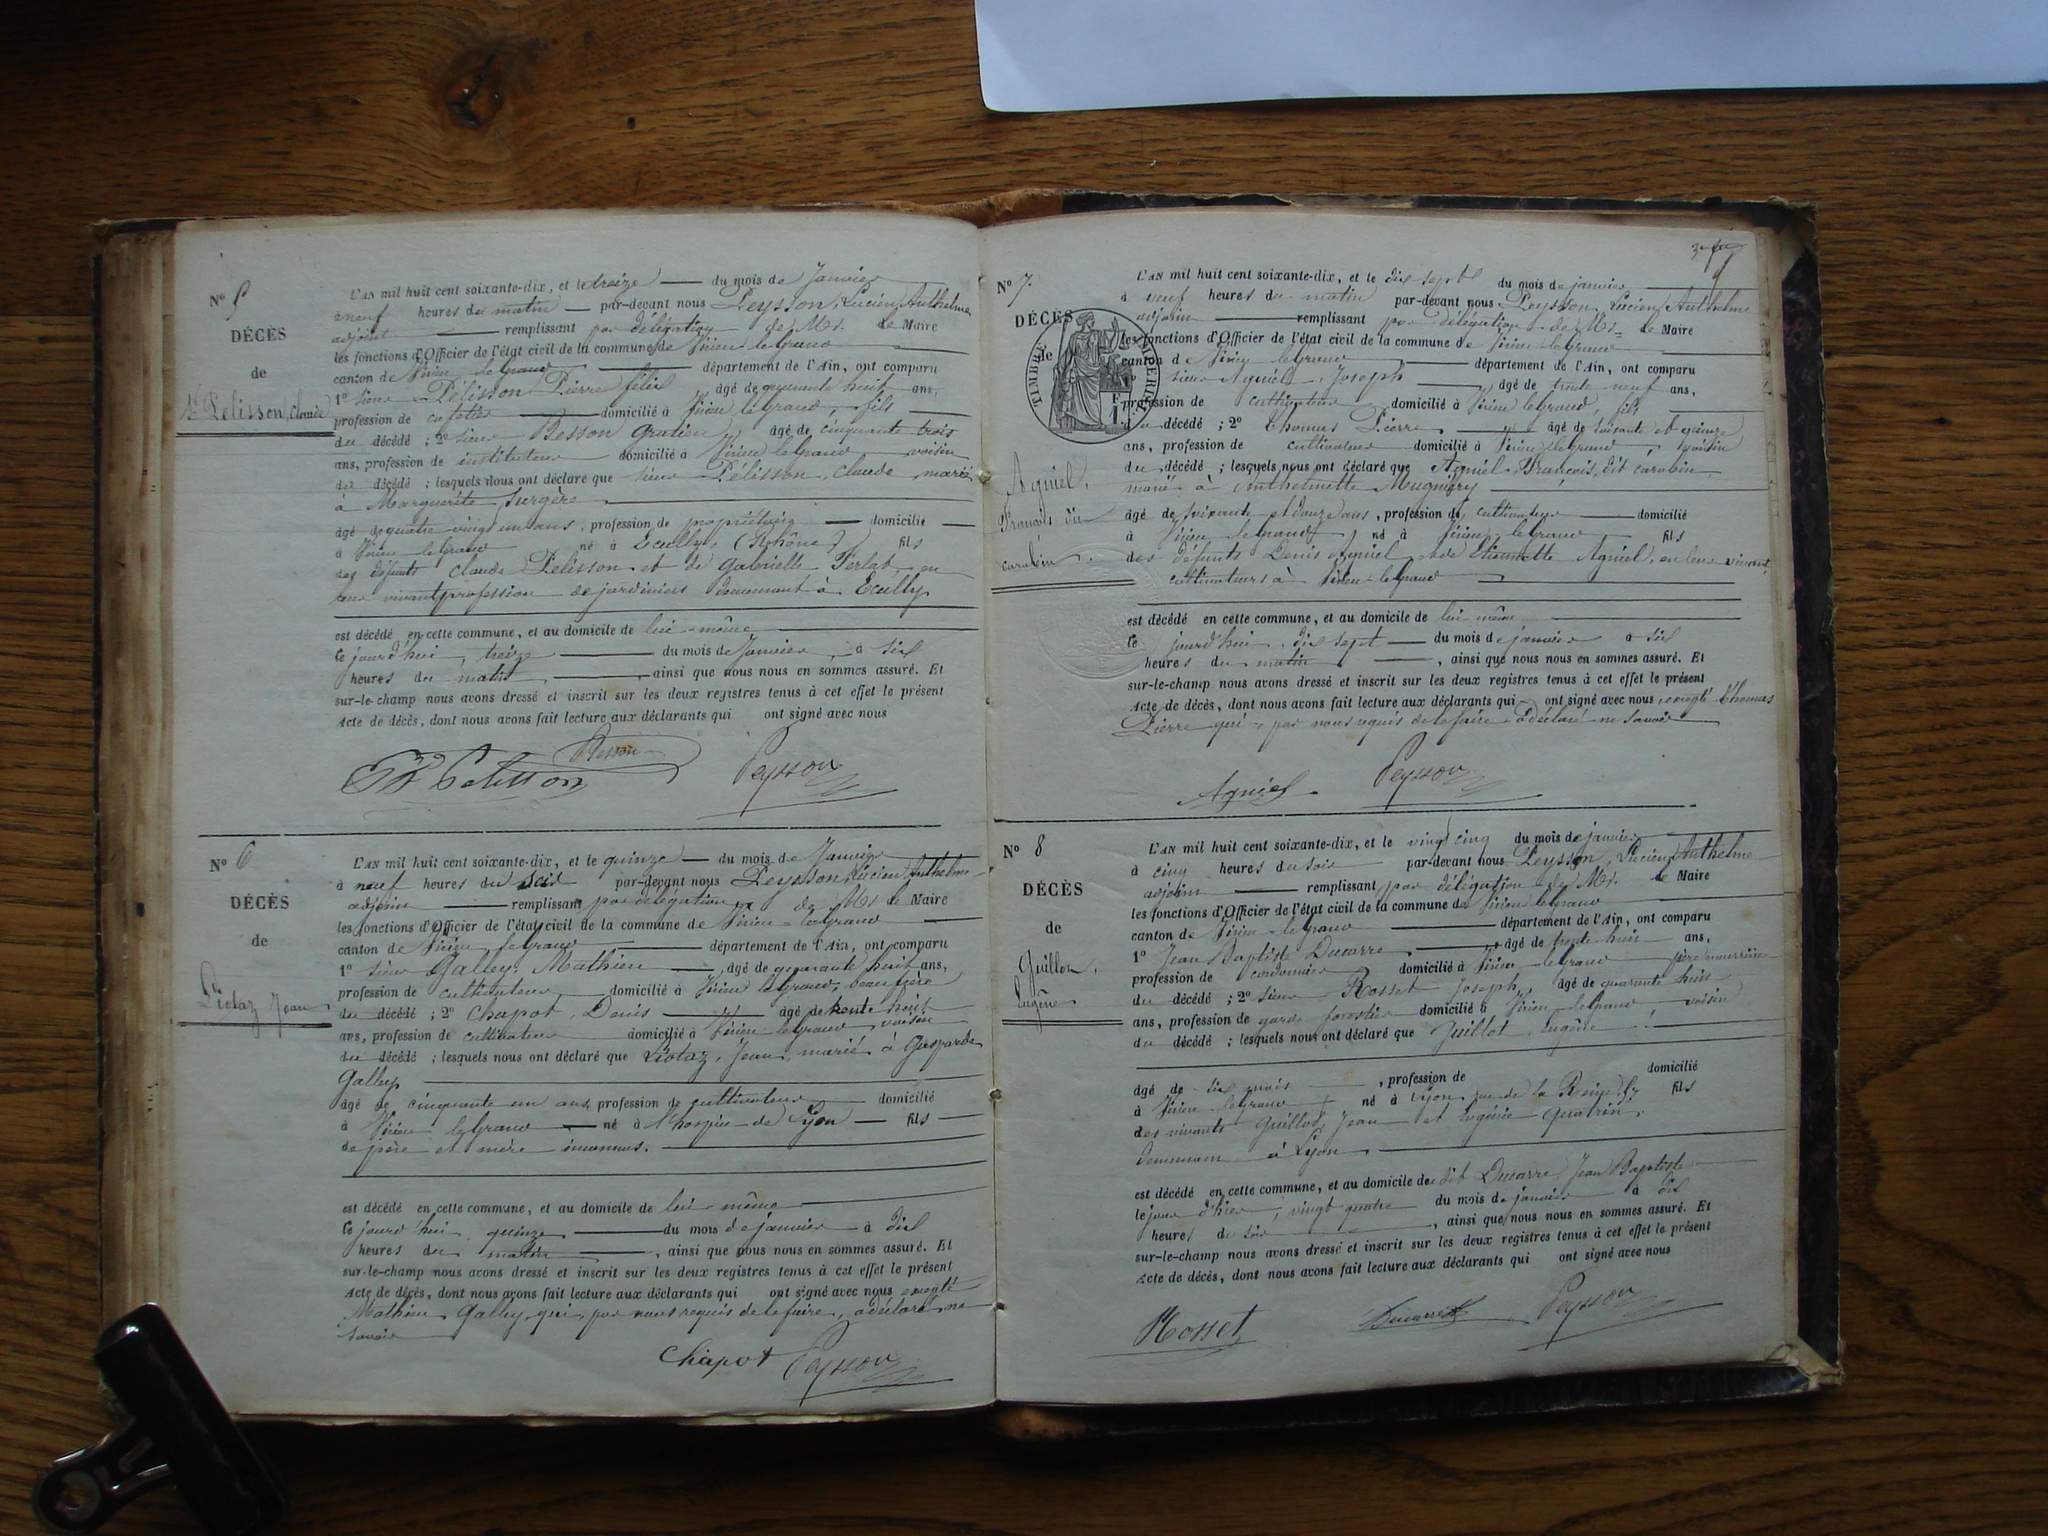 N° 5
DÉCÈS
de
Pelisson, Claude
L'AN mil huit cent soixante-dix, et le treize du mois de Janvier
neuf heures du matin par-devant nous Peysson, Lucien Anthelme
adjoint remplissant par délégation de Mr. le Maire
les fonctions d'Officier de l'état civil de la commune de Virieu le Grand
canton de Virieu le Grand département de l'Ain, ont comparu
1° sieur Pélisson Pierre félix âgé de quarante huit ans,
profession de cafetier domicilié à Virieu le Grand, fils
du décédé ; 2° sieur Besson Gratien âgé de cinquante trois
ans, profession de instituteur domicilié à Virieu le Grand voisin
du décédé ; lesquels nous ont déclaré que sieur Pélisson, Claude, marié
à Marguerite Surgère
âgé de quatre vingt un ans, profession de propriétaire domicilié
à Virieu le Grand né à Ecully (Rhône) fils
des défunts Claude Pelisson et de Gabrielle Ferlat, en
leur vivant profession de jardiniers demeurant à Ecully
est décédé en cette commune, et au domicile de lui-même
ce jourd'hui, treize du mois de Janvier, à six
heures du matin, ainsi que nous nous en sommes assuré. Et
sur-le-champ nous avons dressé et inscrit sur les deux registres tenus à cet effet le présent
acte de décès, dont nous avons fait lecture aux déclarants qui ont signé avec nous
Besson
Pelisson Peysson
N° 6
DÉCÈS
de
Liotaz Jean
L'AN mil huit cent soixante-dix, et le quinze du mois de Janvier
à neuf heures du soir par-devant nous Peysson Lucien Anthelme
adjoint remplissant par délégation de Mr le Maire
les fonctions d'Officier de l'état civil de la commune de Virieu le grand
canton de Virieu le Grand département de l'Ain, ont comparu
1° sieur Galley, Mathieu âgé de quarante huit ans,
profession de cultivateur domicilié à Virieu le Grand, beau frère
du décédé ; 2° Chapot, Denis âgé de trente huit
ans, profession de cultivateur domicilié à Virieu le Grand voisin
du décédé ; lesquels nous ont déclaré que Liotaz, Jean, marié à Gasparde
Galley
âgé de cinquante un ans, profession de cultivateur domicilié
à Virieu le Grand né à l'hospice de Lyon fils
de père et mère inconnus.
est décédé en cette commune, et au domicile de lui-même
ce jourd'hui quinze du mois de janvier à dix
heures du matin, ainsi que nous nous en sommes assuré. Et
sur-le-champ nous avons dressé et inscrit sur les deux registres tenus à cet effet le présent
acte de décès, dont nous avons fait lecture aux déclarants qui ont signé avec nous excepté
Mathieu Galley qui, par nous requis de le faire, a déclaré ne
savoir
Chapot Peysson
N° 7
DÉCÈS
de
TIMBRE IMPÉRIAL
Agniel,
François dit
carabin
L'AN mil huit cent soixante-dix, et le dix sept du mois de janvier
à neuf heures du matin par-devant nous Peysson, Lucien Anthelme
adjoint remplissant par délégation de Mr le Maire
les fonctions d'Officier de l'état civil de la commune de Virieu le Grand
canton de Virieu le Grand département de l'Ain, ont comparu
sieur Agniel, Joseph âgé de trente neuf ans,
profession de cultivateur domicilié à Virieu le Grand, fils
du décédé ; 2° Thomas Pierre âgé de soixante et quinze
ans, profession de cultivateur domicilié à Virieu le Grand, voisin
du décédé ; lesquels nous ont déclaré que Agniel François, dit carabin
marié à Anthelmette Mugniery
âgé de soixante et douze ans, profession de cultivateur domicilié
à Virieu le Grand, né à Virieu le Grand fils
des défunts Denis Agniel et de Etiennette Agniel, en leur vivant
cultivateurs à Virieu le Grand
est décédé en cette commune, et au domicile de lui-même
ce jourd'hui, dix sept du mois de janvier à six
heures du matin, ainsi que nous nous en sommes assuré. Et
sur-le-champ nous avons dressé et inscrit sur les deux registres tenus à cet effet le présent
acte de décès, dont nous avons fait lecture aux déclarants qui ont signé avec nous, excepté Thomas
Pierre qui, par nous requis de le faire a déclaré ne savoir
Agniel Peysson
N° 8
DÉCÈS
de
Guillot,
Eugène
L'AN mil huit cent soixante-dix, et le vingt cinq du mois de janvier
à cinq heures du soir par-devant nous Peysson, Lucien Anthelme
adjoint remplissant par délégation de Mr. le Maire
les fonctions d'Officier de l'état civil de la commune de Virieu le Grand
canton de Virieu le Grand département de l'Ain, ont comparu
1° Jean Baptiste Ducarre âgé de trente huit ans,
profession de cordonnier domicilié à Virieu le Grand père nourricier
du décédé ; 2° sieur Rosset Joseph, âgé de quarante huit
ans, profession de garde forestier domicilié à Virieu le Grand voisin
du décédé ; lesquels nous ont déclaré que Guillot, Eugène
âgé de six mois, profession de domicilié
à Virieu le Grand né à Lyon rue de la Reine 57 fils
des vivants Guillot, Jean et Eugénie Quatrin,
demeurant à Lyon
est décédé en cette commune, et au domicile de dit Ducarre Jean Baptiste
le jour d'hier, vingt quatre du mois de janvier à dix
heures du soir, ainsi que nous nous en sommes assuré. Et
sur-le-champ nous avons dressé et inscrit sur les deux registres tenus à cet effet le présent
acte de décès, dont nous avons fait lecture aux déclarants qui ont signé avec nous
Rosset Ducarre Peysson